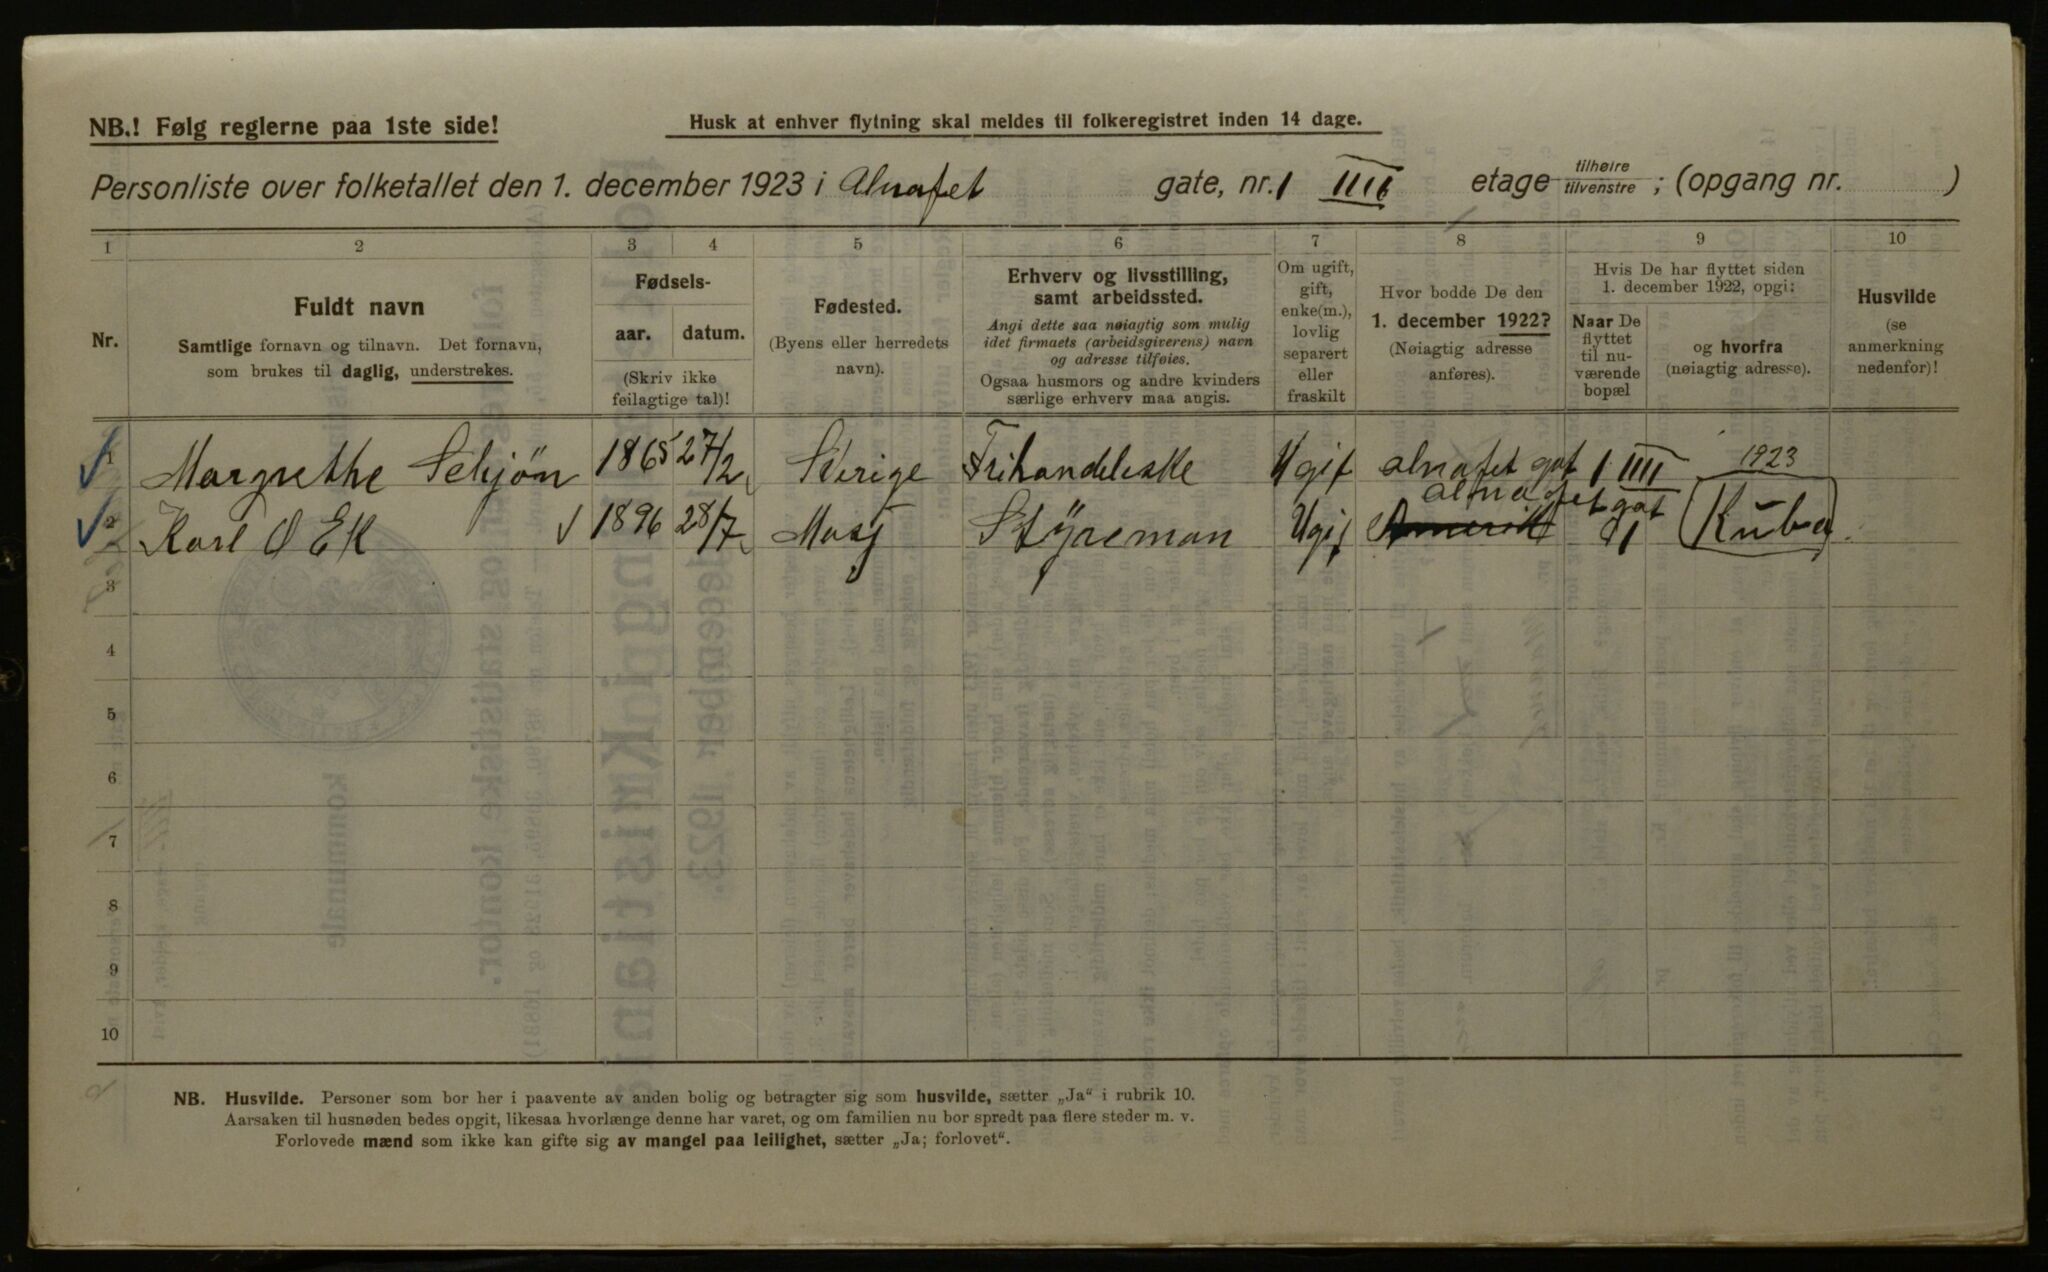 NB.! Følg reglerne paa 1ste side!
Husk at enhver flytning skal meldes til folkeregistret inden 14 dage.
Personliste over folketallet den 1. december 1923 i Alnafet gate, nr. 1 IIII etage tilhøire tilvenstre ; (opgang nr. )
1 2 3 4 5 6 7 8 9 10
Nr.
Fuldt navn
Samtlige fornavn og tilnavn. Det fornavn,
som brukes til daglig, understrekes.
Fødsels-
aar. datum.
(Skriv ikke
feilagtige tal)!
Fødested.
(Byens eller herredets
navn).
Erhverv og livsstilling,
samt arbeidssted.
Angi dette saa nøiagtig som mulig
idet firmaets (arbeidsgiverens) navn
og adresse tilføies.
Ogsaa husmors og andre kvinders
særlige erhverv maa angis.
Om ugift,
gift,
enke(m.),
lovlig
separert
eller
fraskilt
Hvor bodde De den
1. december 1922?
(Nøiagtig adresse
anføres).
Hvis De har flyttet siden
1. december 1922, opgi:
Naar De
flyttet
til nu-
værende
bopæl
og hvorfra
(nøiagtig adresse).
Husvilde
(se
anmerkning
nedenfor)!
1 Margrethe Schjön 1865 27/2 Sverige Frihandelerske Ugif alnafet gat 1 IIII
1923
2 Karl O EK 1896 28/7 Mosj Stÿreman Ugif alnafet gat 1 Kuba
3
4
5
6
7
8
9
10
NB. Husvilde. Personer som bor her i paavente av anden bolig og betragter sig som husvilde, sætter „Ja“ i rubrik 10.
Aarsaken til husnøden bedes opgit, likesaa hvorlænge denne har varet, og om familien nu bor spredt paa flere steder m. v.
Forlovede mænd som ikke kan gifte sig av mangel paa leilighet, sætter „Ja; forlovet“.